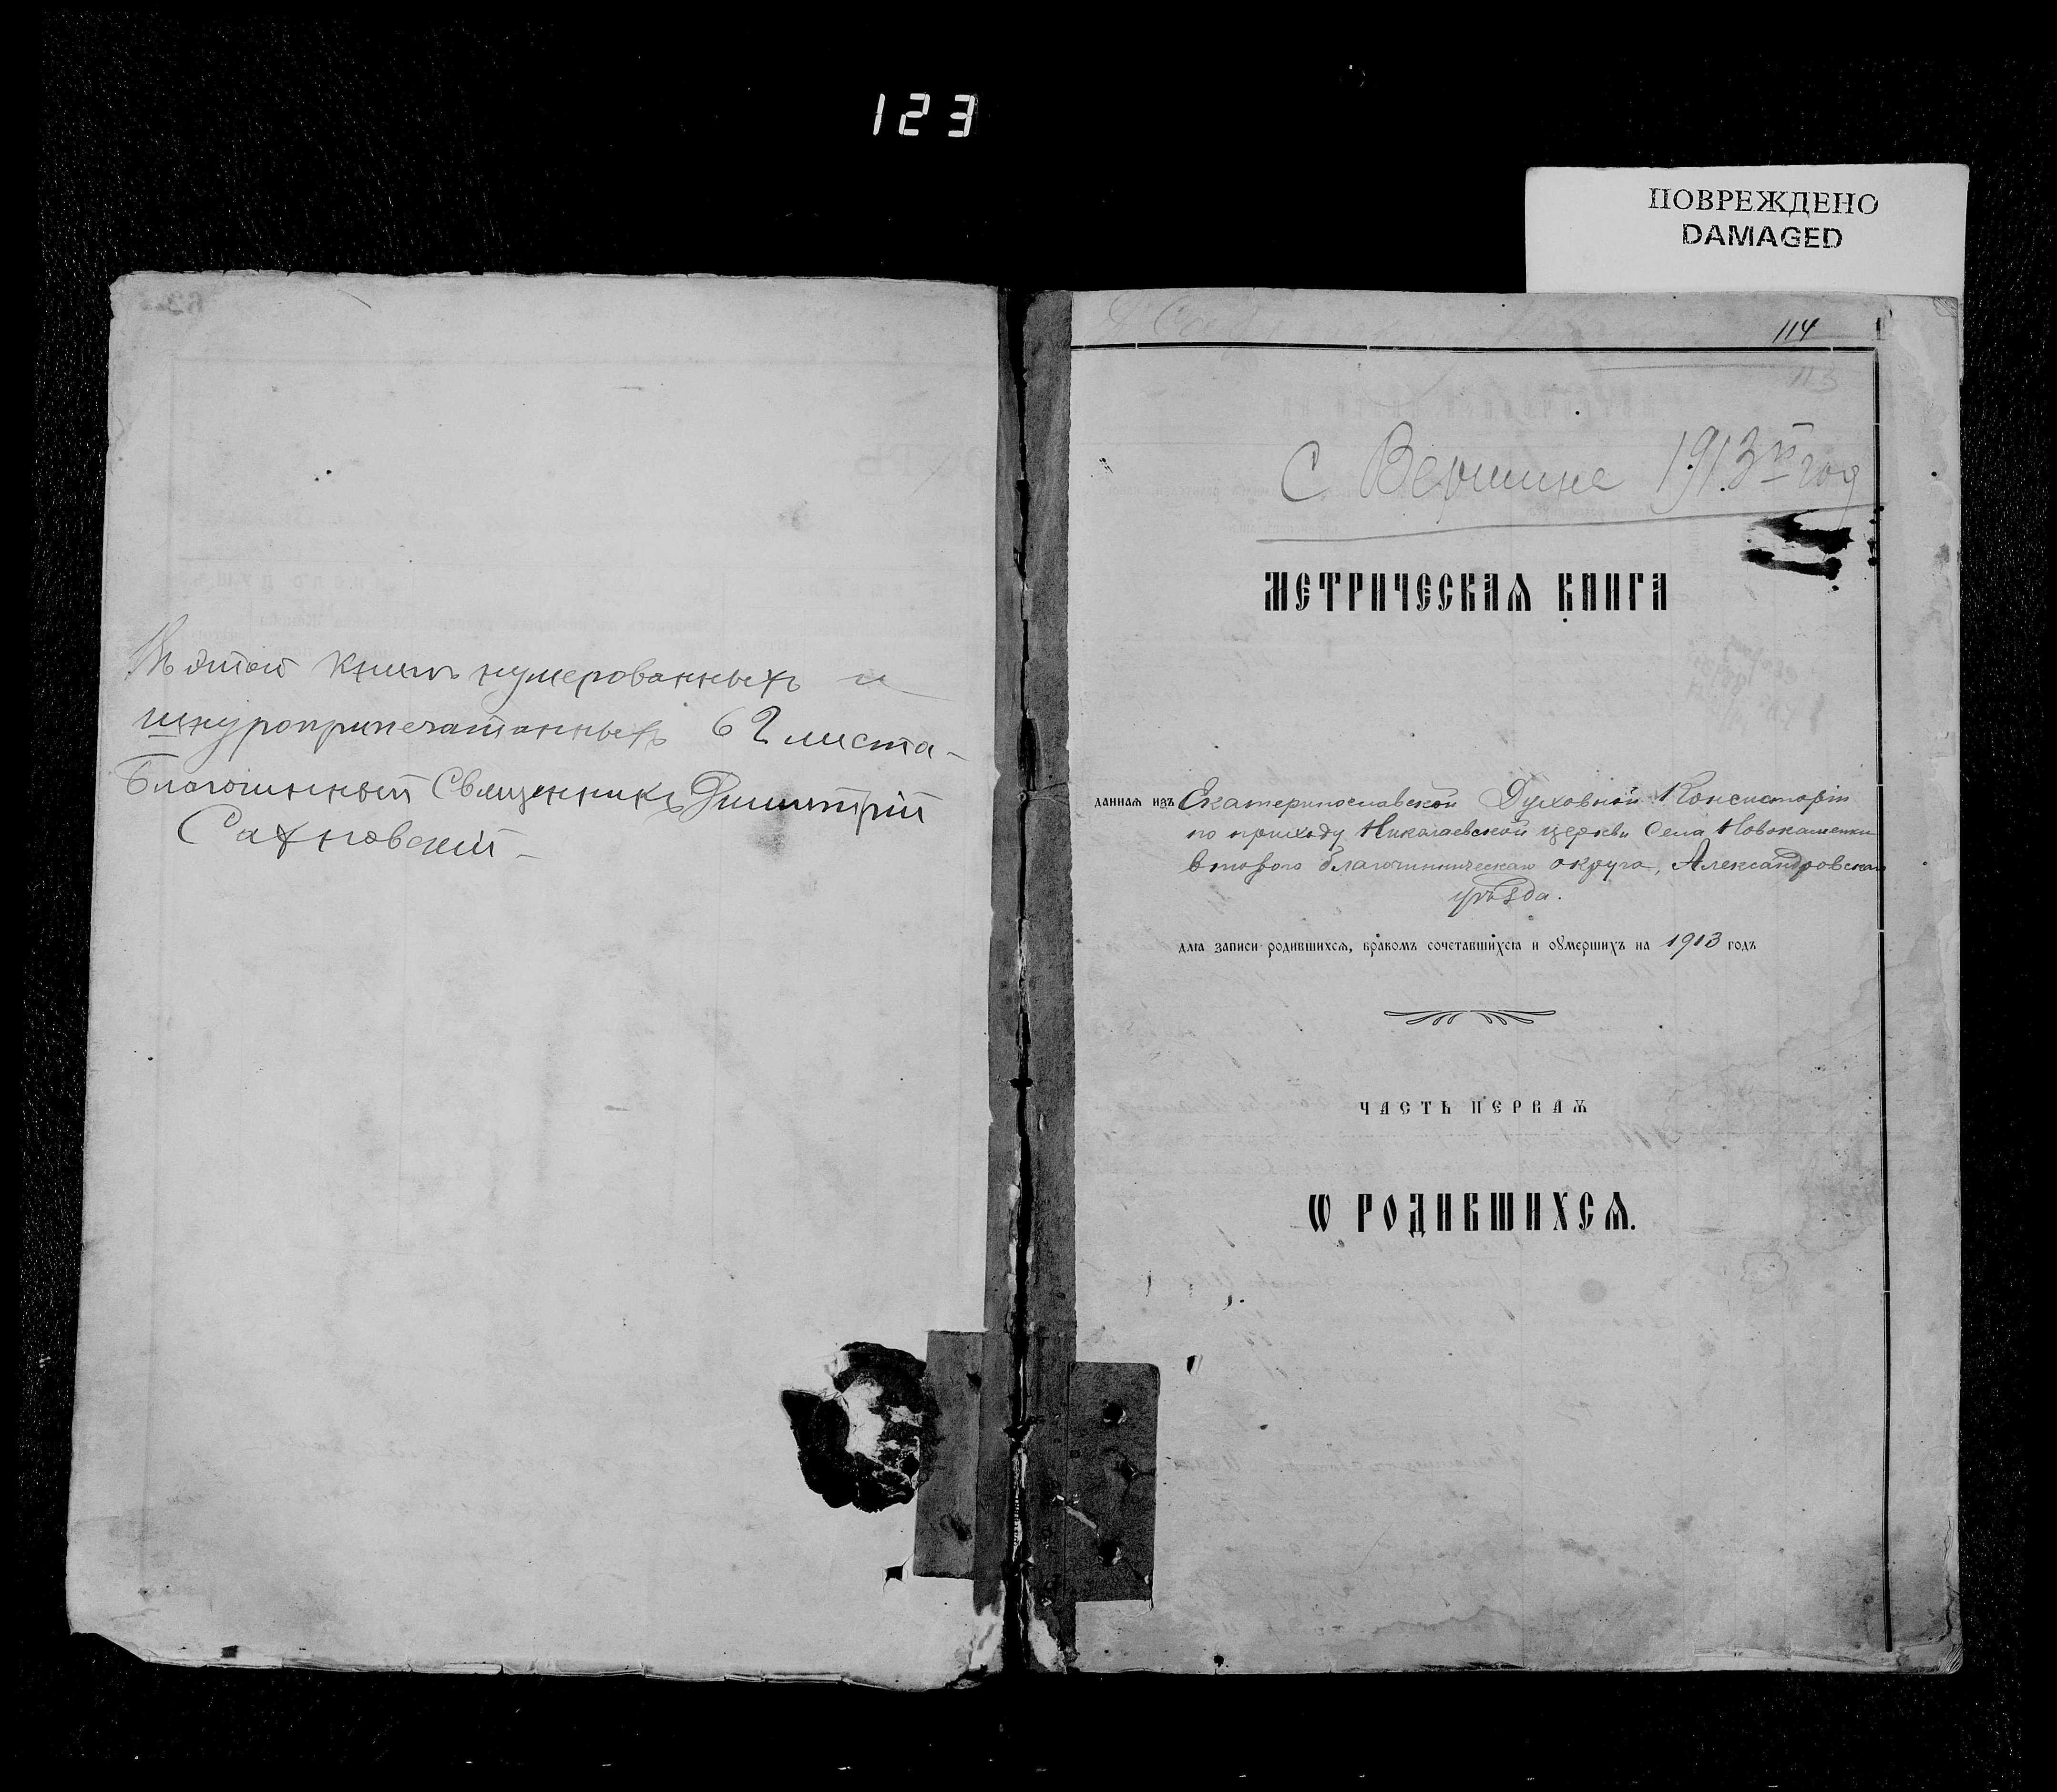 123
ПОВРЕЖДЕНО
DAMAGED
Въ этой книгѣ нумерованныхъ и
шнуроприпечатанныхъ 62 листа-
Благочинный Священникъ Димитрій
Сахновскій-
114
113
С Вершине 1913й год
МЕТРИЧЕСКАѦ КНИГА
даннаѧ изъ Екатеринославской Духовной Консисторіи
по приходу Николаевской церкви села Новокаменки
второго благочинническаго округа, Александровскаго
уѣзда.
длѧ записи родившихсѧ, бракомъ сочетавшихсѧ и оумершихъ на 1913 годъ
ЧАСТЬ ПЕРВАѦ
Ѡ РОДИВШИХСѦ.